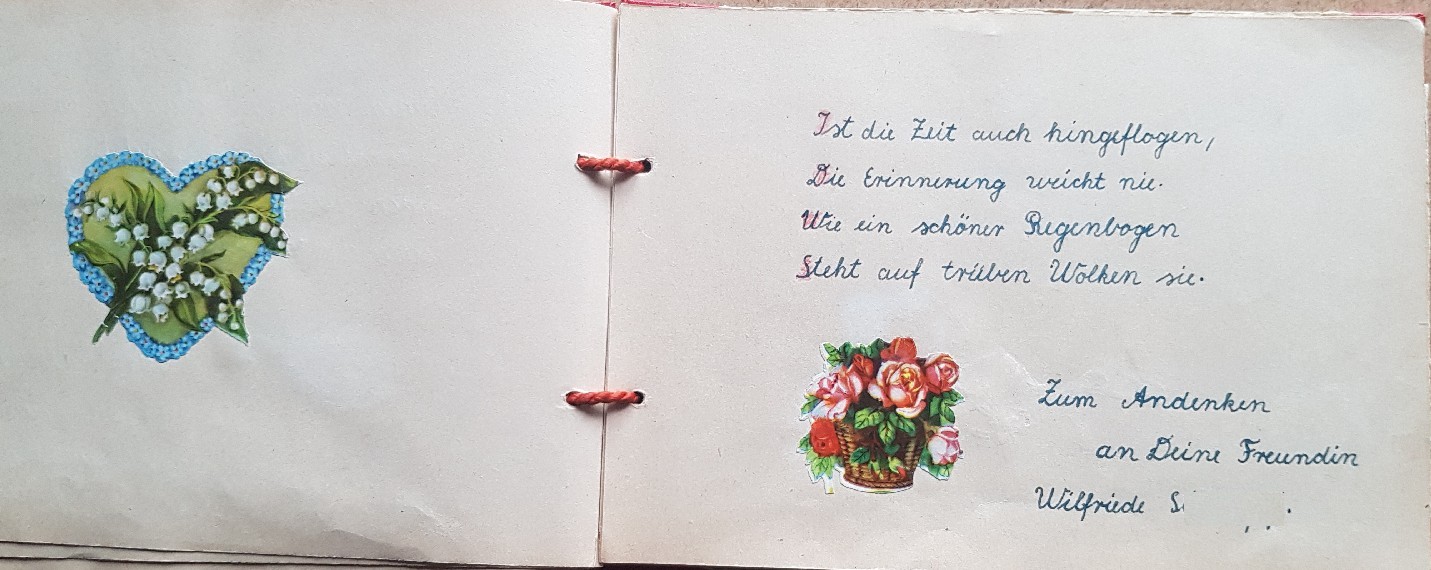 Ist die Zeit auch hingeflogen,
Die Erinnerung weicht nie.
Wie ein schöner Regenbogen
Steht auf trüben Wolken sie.
Zum Andenken
an Deine Freundin
Wilfriede S.